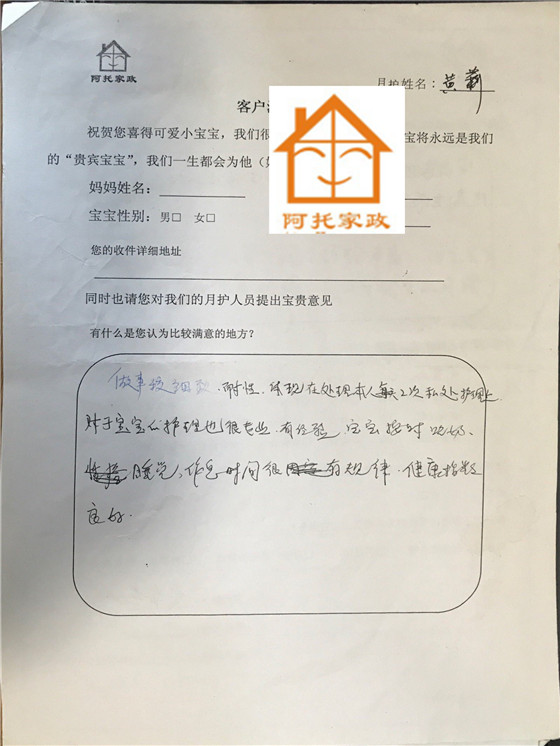 阿托家政
月护姓名：黄
客户
祝贺您喜得可爱小宝宝，我们很 宝将永远是我们
的“贵宾宝宝”，我们一生都会为他（
阿托家政
妈妈姓名：
宝宝性别：男□ 女□
您的收件详细地址
同时也请您对我们的月护人员提出宝贵意见
有什么是您认为比较满意的地方？
做事很细致．耐性．体现在处理本人每天2次私处护理上
对于宝宝的护理也很专业．有经验．宝宝按时吃奶．
睡觉．作息时间很有规律．健康指数
良好．